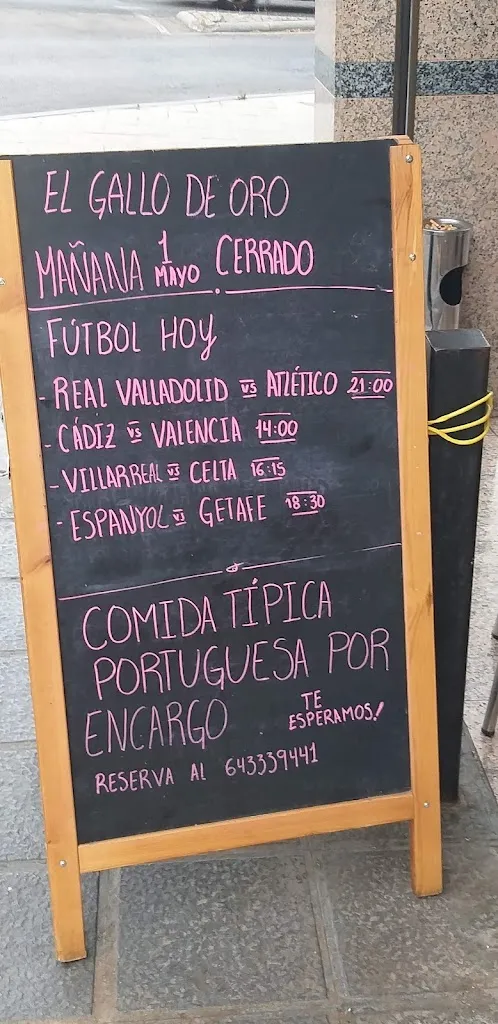 EL GALLO DE ORO
MAÑANA 1 MAYO CERRADO
FÚTBOL HOY
- REAL VALLADOLID VS ATLÉTICO 21:00
- CÁDIZ VS VALENCIA 14:00
- VILLARREAL VS CELTA 16:15
- ESPANYOL VS GETAFE 18:30
COMIDA TÍPICA
PORTUGUESA POR
ENCARGO
TE
ESPERAMOS!
RESERVA AL 643339441